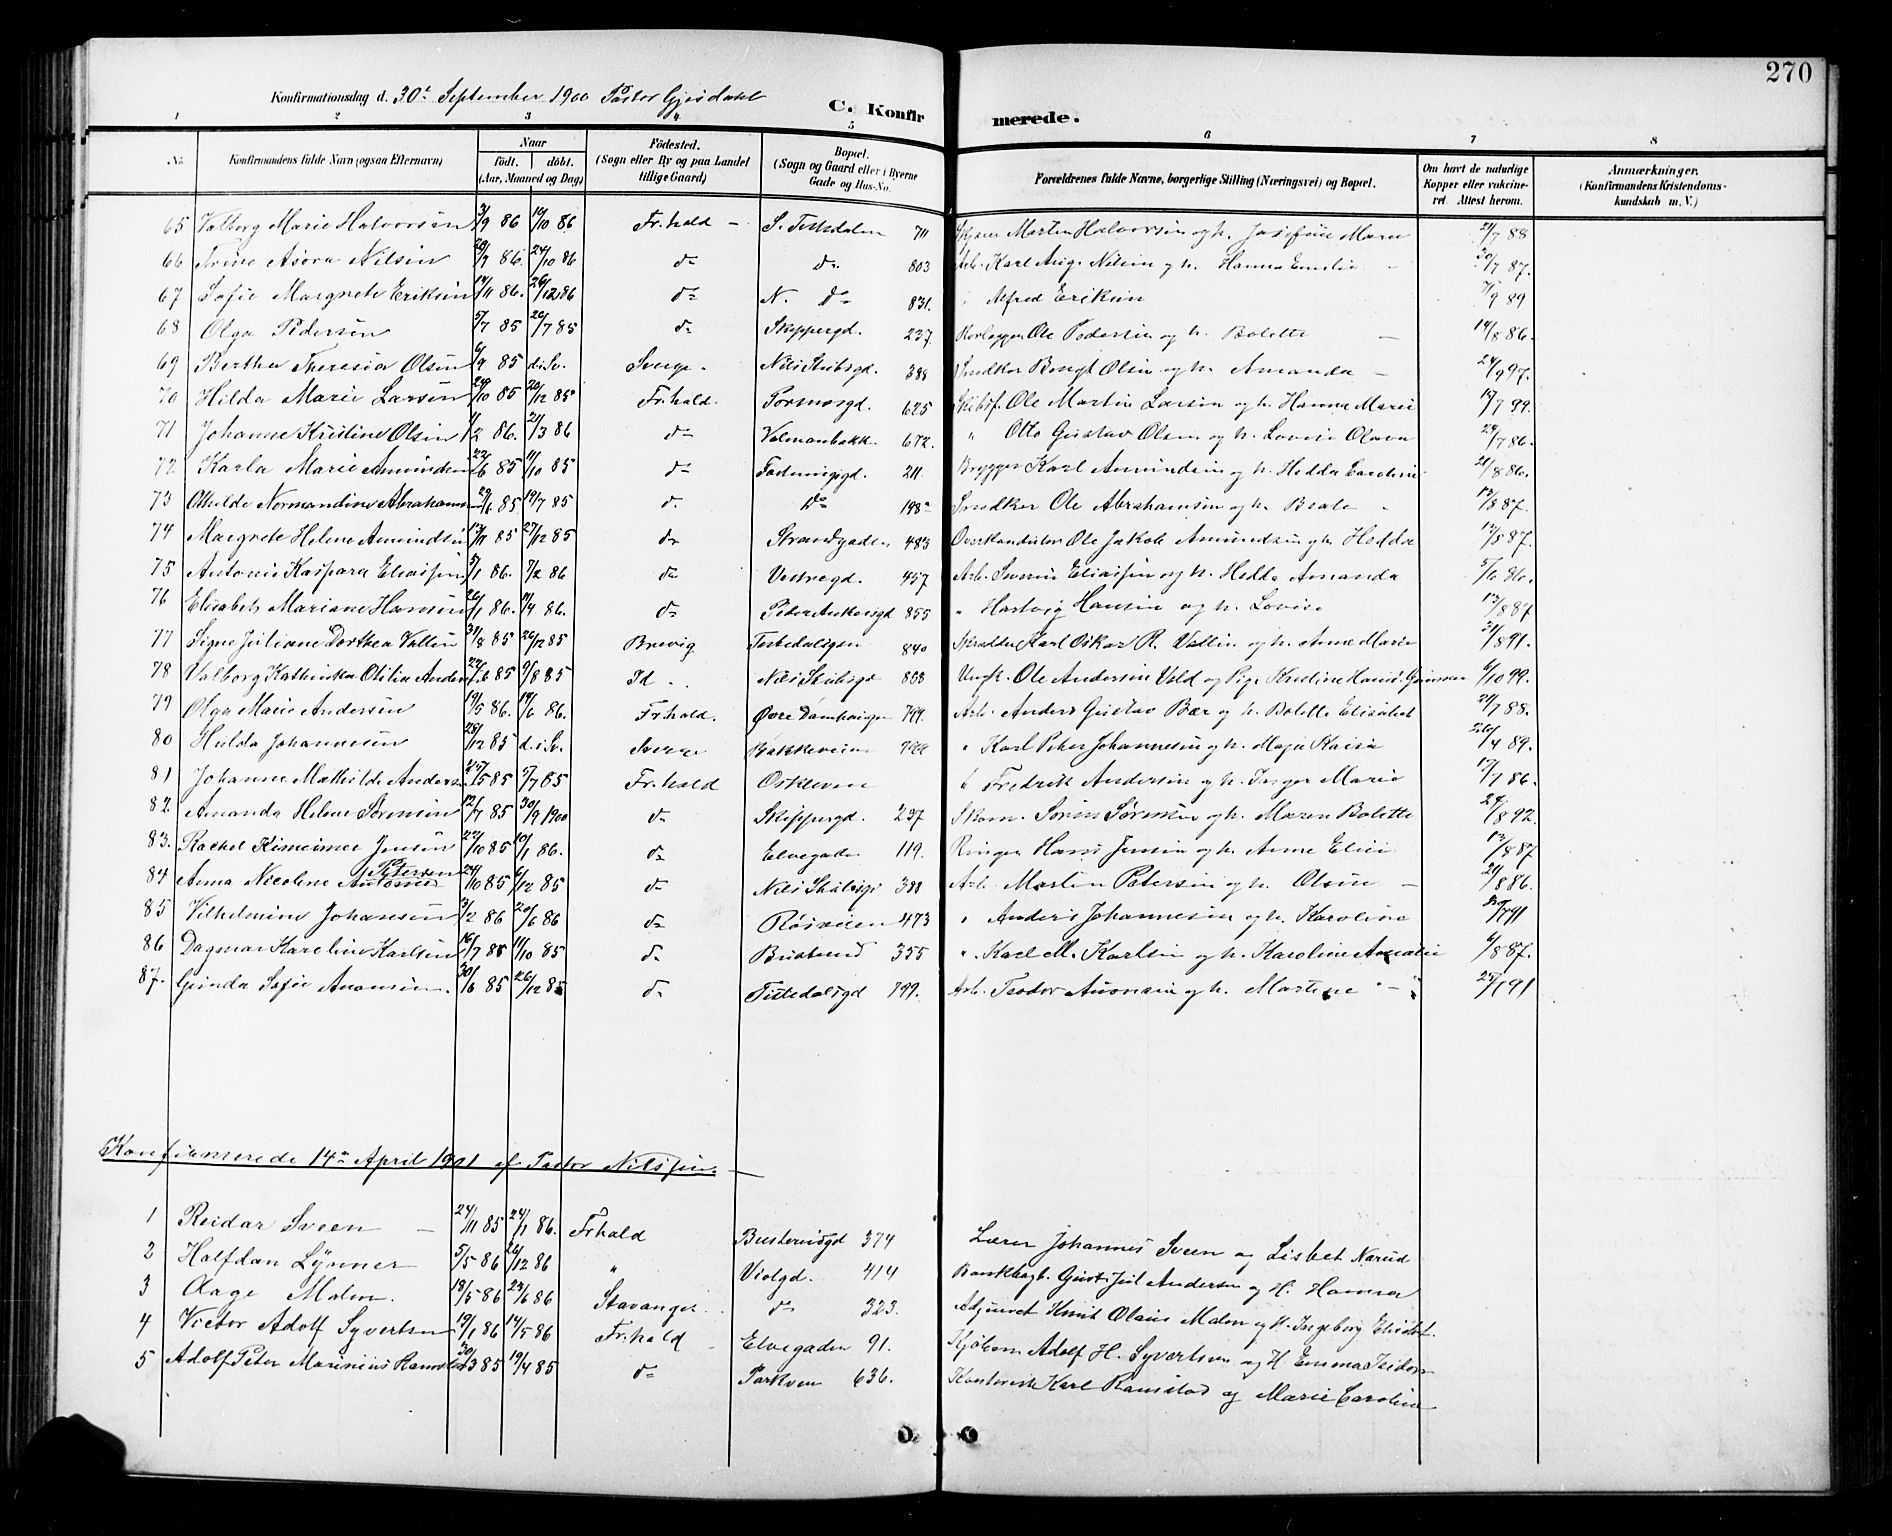 270
Konfirmationsdag d. 30te September 1900 Pastor Gjesdahl
C. Konfirmerede.
1 2 3 4 5 6 7 8
No. Konfirmandens fulde Navn (ogsaa Efternavn) Naar födt. döbt. (Aar, Maaned og Dag) Födested. (Sogn eller By og paa Landet tillige Gaard) Bopæl. (Sogn og Gaard eller i Byerne Gade og Hus-No. Forældrenes fulde Navne, borgerlige Stilling (Næringsvei) og Bopæl. Om havt de naturlige Kopper eller vaccineret. Attest herom. Anmærkninger. (Konfirmandens Kristendomskundskab m. V.)
65 Valborg Marie Halvorsen 3/9 86 19/10 86 Fr.hald - S. Tistedalen 711 Morten Halvorsen og h. Josefine Marie 21/7 88
66 Trine Asora Nilsen 86. 24/10 86 do do 803 Arb. Karl Aug. Nilsen og h. Hanna Emilie 20/7 87.
67 Sofie Margrete Eriksen 11 86. 26/12 86 do N. do 831. " Alfred Eriksen 9 89
68 Olga Pedersen 5/7 85 20/7 85 do Skippergd. 237. Ole Pedersen og h. Bolette 14/8 86.
69 Bertha Theresia Olsen 6/9 85 d.i Sv. Sverge. Nils Stubsgd. 388 Snedker Bengt Olsen og h. Amanda - 24/9 97.
70 Hilda Marie Larsen 29/10 85 20/12 85 Fr.hald. 625 Skibsf. Ole Martin Larsen og h. Hanna Marie 19/7 99.
71 Johanne Kristine Olsen 1/2 86. 21/3 86 do Volmanbakk. 672. " Otto Gustav Olsen og h. Lovise Olava 24/7 86.
72 Karla Marie Amundsen 22/6 85 11/10 85 do Fastningsgd. 211. Brygger Karl Amundsen og h. Hedda Caroline 21/8 86.
73 Othilde Normandine Abrahams 29/6 85 19/7 85 do Do 198 Snedker Ole Abrahamsen og h. Beate " 13/8 87.
74 Margrete Helene Amundsen 13/11 85 27/12 85 do Strandgaden 483 Overkonduktor Ole Jakob Amundsen og h. Hedda 12/8 87.
75 Antonie Kaspara Eliassen 5/1 86. 7/2 86 do Vestregd. 457 Arb. Eliassen og h. Hedda Amanda 5/6 86.
76 Elisabet Mariane Hansen 26/1 86. 11/4 86. do Peter Ankersgd 855 " Hartvig Hansen og h. Lovise 13/8 87
77 Signe Juliane Dorthea Vallin 31/8 85 26/12 85 Brevig Tistedalsgen 840 Skrædder Karl Oskar R. Vallin og h. Anne Marie 21/8 91.
78 Valborg Kathinka Otilia Anders 22/6 85 9/8 85 Id . . Nils Stubsgd 808 Ungk. Ole Andersen Vold og Pige Kristine Hansd. 6/10 99.
79 Olga Marie Andersen 19/5 86. 14/6 86. Fr.hald. Øvre Damhaugen 799. Arb. Anders Gustav Bær og h. Bolette Elisabet 21/7 88.
80 Hulda Johannesen 28/12 85 d.i Sv. Sverge Bakkeveien " Karl Peter Johannesen og h. Maja Kaisa 26/4 89.
81 Johanne Mathilde Anders 27/5 85 5/7 85 Fr.hald Oskleven " Fredrik Andersen og h. Inger Marie 17/7 86.
82. Amanda Helene Sørensen 12/7 85 30/9 1900 do Skippergd. 237 Skom. Søren Sørensen og h. Maren Bolette 24/8 92.
83. Rachel Jensen 22/10 85 10/1 86. do Elvegaden 119. Ringer Hans Jensen og h. Anne Elise 13/8 87
84 Anna Nicoline Petersen 24/10 85 6/12 85 do Nils Stubsgd 388 Arb. Martin Petersen og h. Olsine - 24/8 86.
85 Vilhelmine Johansen 3/2 86 20/6 86 do Røsveien 473 " Anders Johannesen og h. Karoline 7 91
86 Dagmar Karoline Karlsen 16/7 85 11/10 85 do Busterud 355 ". Karl M. Karlsen og h. Karoline Amalie 6/8 87.
87. Gunda Sofie Aronsen. 30/6 85 26/12 85 do Tistedalsgd 799. Arb. Teodor Aronsen og h. Martine " - " 25/1 91
Konfirmerede 14de April 1901 af Pastor Nilssen. -
1 Reidar Sveen - 24/11 85 24/1 86. Frhald Busterudgd 374 Lærer Johannes Sveen og Lisbet Narud
2 Halfdan Lynner 5/5 86 26/12 86 " Violgd. 414 Gust. Juul Andersen og H. Hanna
3 Aage Malm. 13/5 86 23/6 86 Stavanger. do 323. Adjunct Knut Olaus Malm og H. Ingeborg Elisabet.
4 Victor Adolf Syvertsen 19/1 86 14/5 86 Fr.hald Elvegaden 91. Kjøbm Adolf H. Syvertsen og H Emma Isidora
5 Adolf Peter Marinius Ramstad 30/3 85 19/4 85 do Parkven 636. Karl Ramstad og Marie Caroline